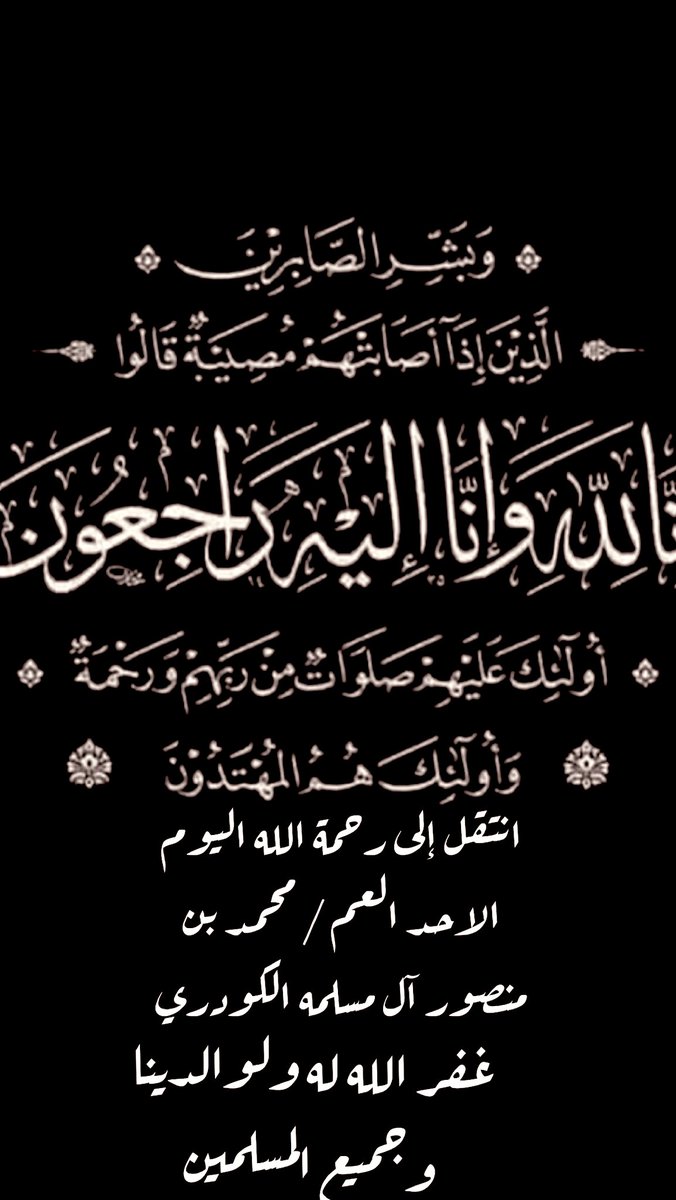 وَبَشِّرِ الصَّابِرِيْنَ
الَّذِيْنَ إِذَآ أَصَابَتْهُمْ مُصِيْبَةٌ قَالُوا
نَّا لِلّٰهِ وَإِنَّا إِلَيْهِ رَاجِعُوْنَ
أُولَٓئِكَ عَلَيْهِمْ صَلَوَاتٌ مِنْ رَبِّهِمْ وَرَحْمَةٌ
وَأُولَٓئِكَ هُمُ المُهْتَدُوْنَ
انتقل إلى رحمة الله اليوم
الاحد العم / محمد بن
منصور آل مسلمه الكودري
غفر الله له ولوالدينا
وجميع المسلمين